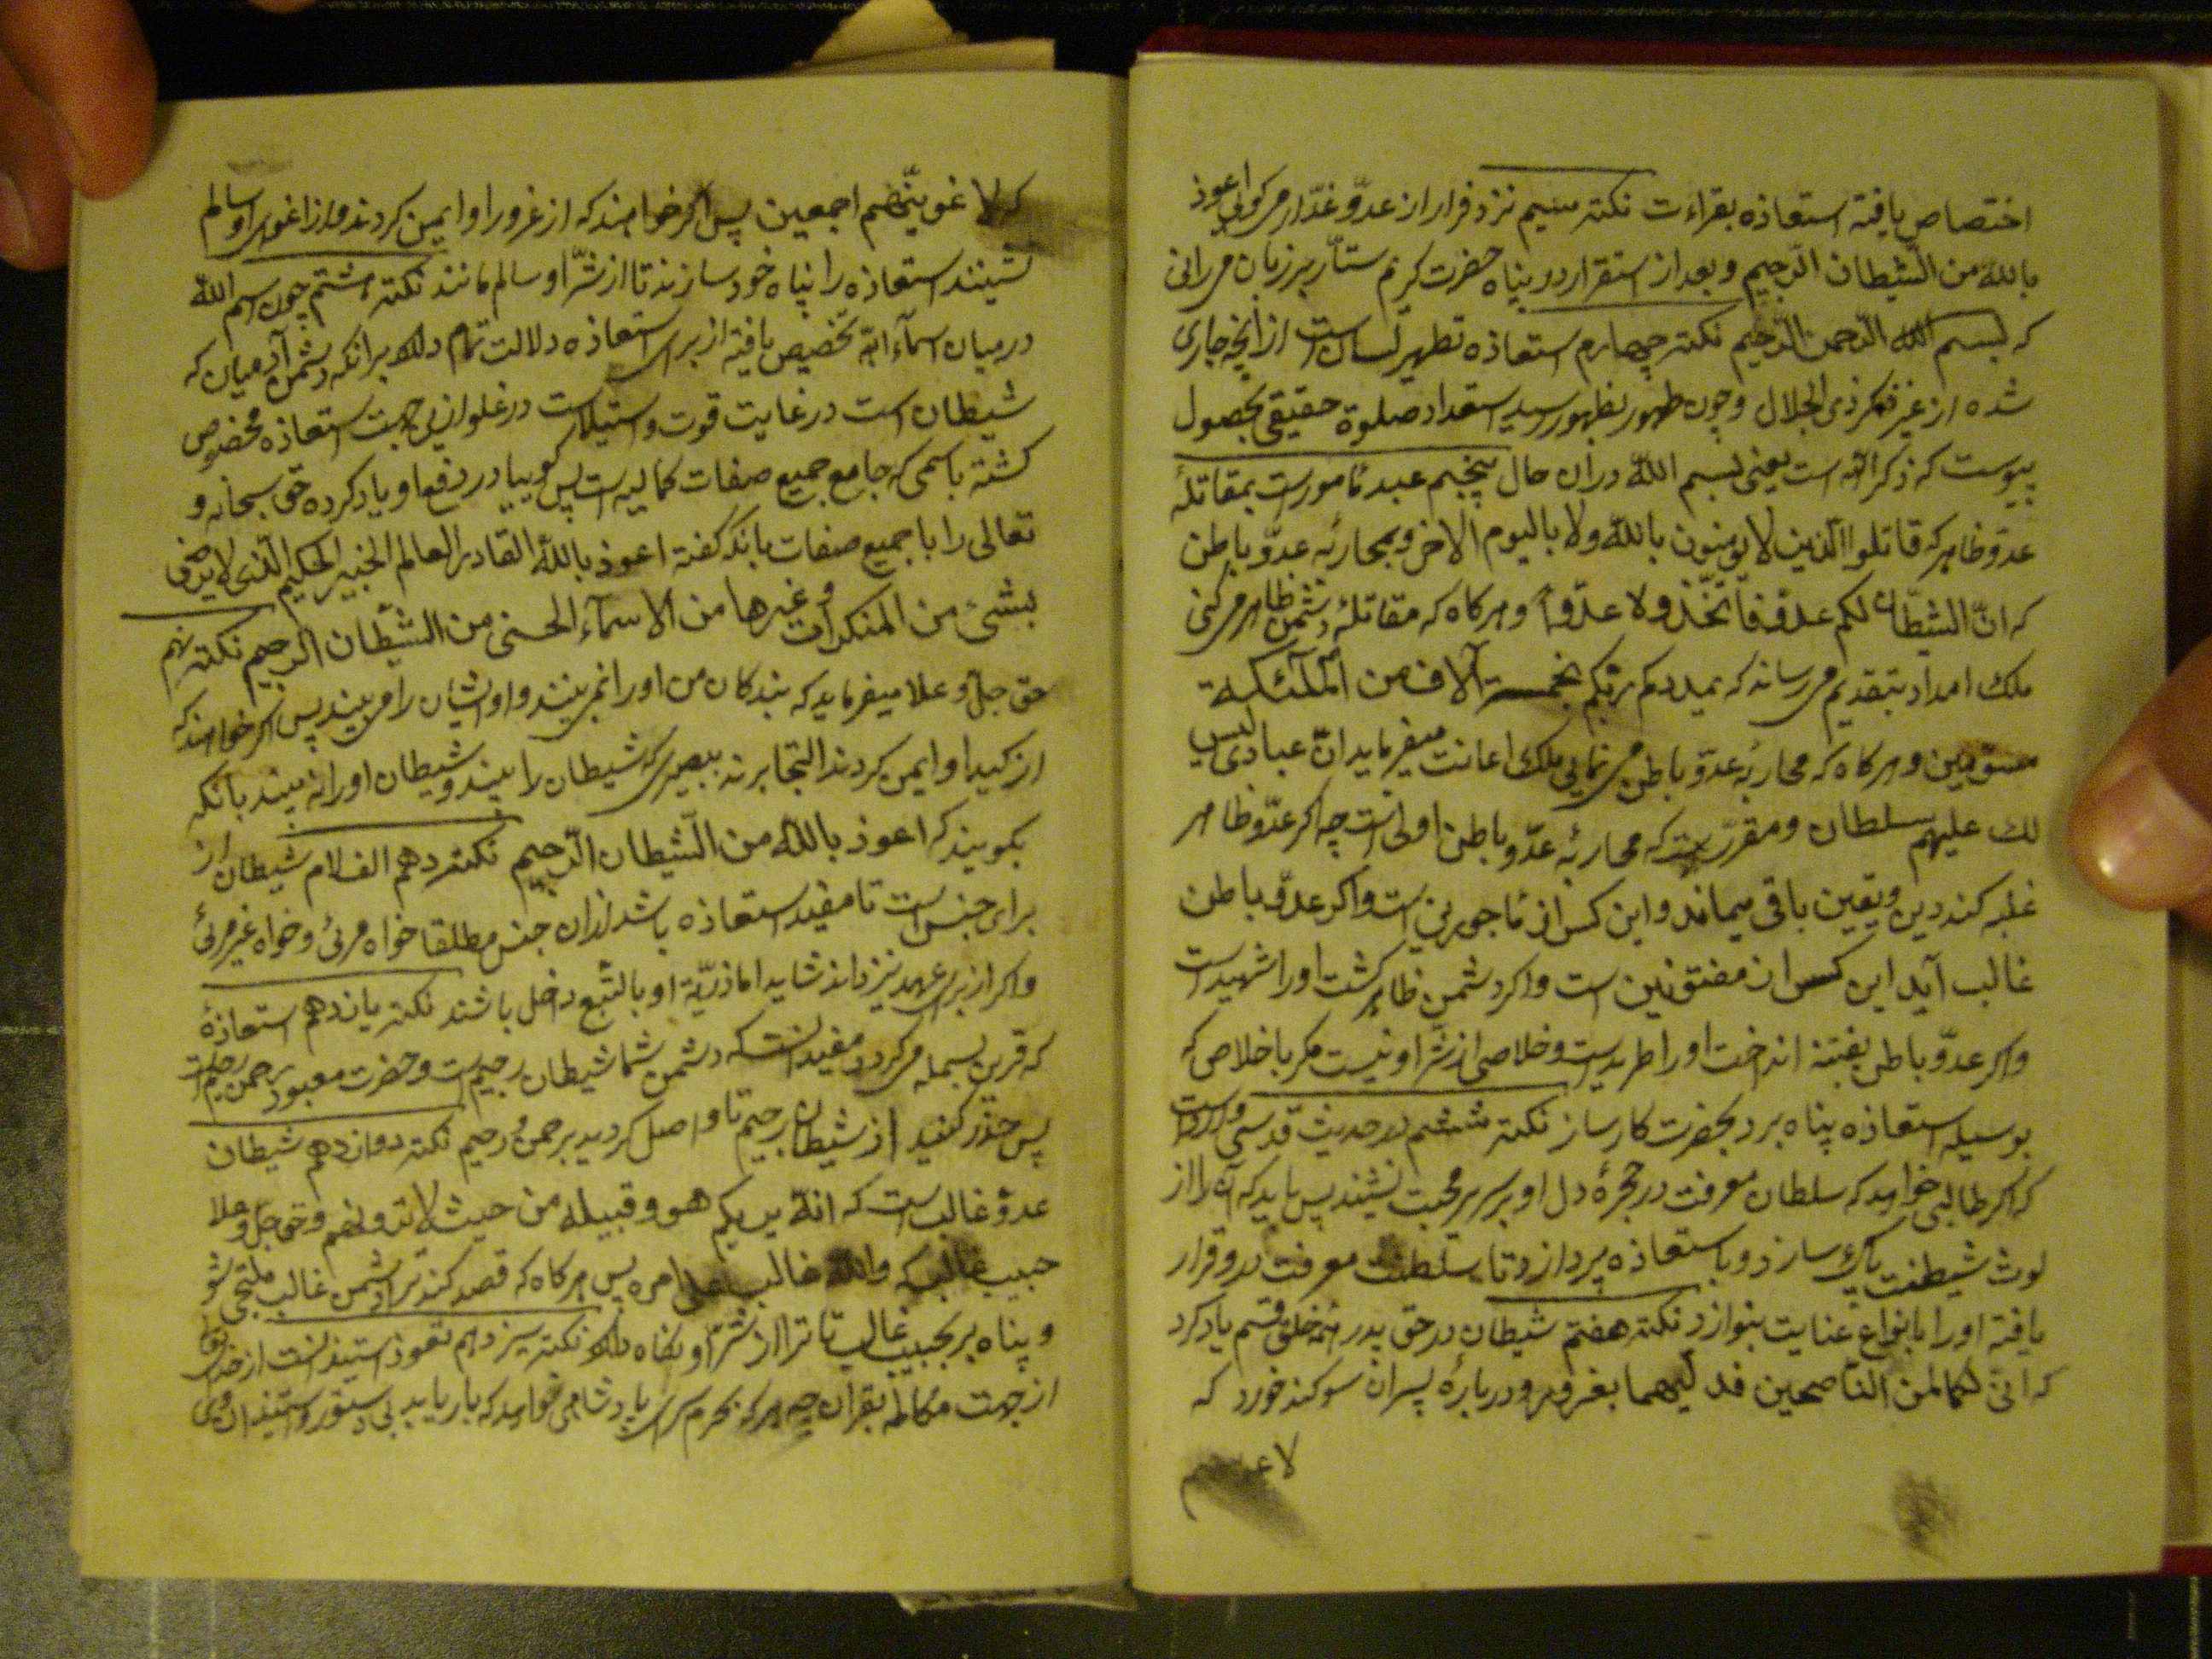 اختصاص یافته استعاذه بقراءت نکته سیم نزد فرار از عدوّ غدّار میگویی اعوذ
بالله من الشّیطان الرّجیم و بعد از استقرار در پناه حضرت کریم ستّار بر زبان میرانی
که بسم الله الرّحمن الرّحیم نکته چهارم استعاذه تطهیر لسانست از آنچه جاری
شده از غیر ذکر ذی الجلال و چون طهور بظهور رسید استعداد صلوة حقیقی بحصول
پیوست که ذکر الله است یعنی بسم الله در آن حال پنجم عبد مامورست بمقاتلهٔ
عدوّ ظاهر که قاتلوا الّذین لا یؤمنون بالله ولا بالیوم الاخر و بمحاربهٔ عدوّ باطن
که انّ الشیطان لکم عدوّ فاتّخذوه عدوّا و هرگاه که مقاتلهٔ دشمن ظاهر میکنی
ملک امداد بتقدیم میرساند که یمددکم ربّکم بخمسة آلاف من الملئکة
مسوّمین و هرگاه که محاربهٔ عدوّ باطن مینمایی ملک اعانت میفرماید انّ عبادی لیس
لک علیهم سلطان و مقرّرست که محاربهٔ عدوّ باطن اولی است چه اگر عدوّ ظاهر
غلبه کند دین و یقین باقی میماند و این کس از ماجورین است و اگر عدوّ باطن
غالب آید این کس از مفتونین است و اگر دشمن ظاهر کشت او را شهیدست
و اگر عدوّ باطن بفتنه انداخت او را طریدست و خلاصی از شرّ او نیست مگر باخلاص که
بوسیله استعاذه پناه برد بحضرت کارساز نکته ششم در حدیث قدسی واردست
که اگر طالبی خواهد که سلطان معرفت در حجرهٔ دل او بر سریر محبت نشیند پس باید که آنرا از
لوث شیطنت پاک سازد و باستعاذه پردازد تا سلطنت معرفت در و قرار
یافته او را بانواع عنایت بنوازد نکته هفتم شیطان در حق پدر همه خلق قسم یاد کرد
که انّی لکما لمن النّاصحین فدلّیهما بغرور و دربارهٔ پسران سوکند خورد که
که لاغوینّهم اجمعین پس اگر خواهند که از غرور او ایمن کردند و از اغوای او سالم
نشینند استعاذه را پناه خود سازند تا از شرّ او سالم مانند نکته هشتم چون اسم الله
در میان اسمآء الله تخصیص یافته از برای استعاذه دلالت تمام دارد بر آنکه دشمن آدمیان که
شیطان است در غایت قوت و استیلاست در غلو ازین جهت استعاذه مخصوص
کشته باسمی که جامع جمیع صفات کمالیه است پس گوییا در دفع او یاد کرده حق سبحانه و
تعالی را با جمیع صفات بانکه گفته اعوذ بالله القادر العالم الخبیر الحکیم الّذی لا یرضی
بشیء من المنکرات و غیرها من الاسمآء الحسنی من الشّیطان الرّجیم نکته نهم
حق جلّ و علا میفرماید که بندکان من او را نمی بینند و او ایشان را می بیند پس اگر خواهند که
از کید او ایمن کردند التجا برند ببصیری که شیطان را بیند و شیطان او را نه بیند بانکه
بگویند که اعوذ بالله من الشّیطان الرّجیم نکته دهم الف لام شیطان از
برای جنس است تا مفید استعاذه باشد از آن جنس مطلقا خواه مرئی و خواه غیر مرئی
و اگر از برای عهد نیز داند شاید اما ذریّة او بالتّبع داخل باشند نکته یازدهم استعاذهٔ
که قرین بسمله میکردد مفید آنست که دشمن شما شیطان رجیمست و حضرت معبود رحمن رحیمست
پس حذر کنید از شیطان رجیم تا واصل کردید برحمن و رحیم نکته دوازدهم شیطان
عدوّ غالب است که انّه یریکم هو و قبیله من حیث لا ترونهم و حق جلّ و علا
حبیب غالب که والله غالب علی امره پس هرگاه که قصد کند ترا دشمن غالب ملتجی شو
و پناه بر بحبیب غالب تا ترا از شرّ او نکاه دارد نکته سیزدهم تعوذ استیذانست از خدای
از جهت مکالمه بقران چه هر که بحرم سرای پادشاهی خواهد که بار یابد بی دستور و استیذان